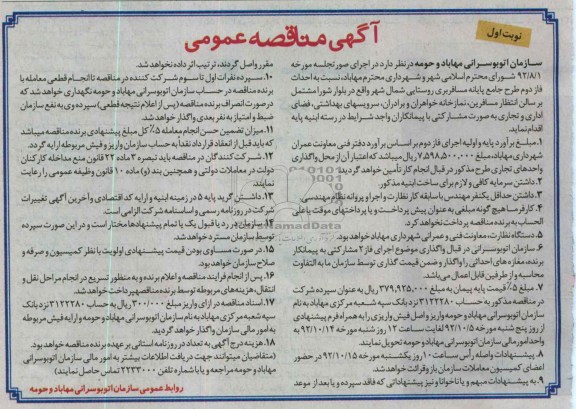 نوبت اول
آگهی مناقصه عمومی
سازمان اتوبوسرانی مهاباد و حومه در نظر دارد در اجرای صور تجلسه مورخه
۹۲/۸/۱ شورای محترم اسلامی شهر و شهرداری محترم مهاباد، نسبت به احداث
فاز دوم طرح جامع پایانه مسافربری روستایی شمال شهر واقع در بلوار شورا مشتمل
بر سالن انتظار مسافرین، نمازخانه خواهران و برادران، سرویسهای بهداشتی، فضای
اداری و تجاری به صورت مشارکتی با پیمانکاران واجد شرایط در رسته ابنیه پایه
اقدام نماید.
۱. مبلغ برآورد پایه و اولیه اجرای فاز دوم بر اساس برآورد دفتر فنی معاونت عمران
شهرداری مهاباد، مبلغ ۷,۵۹۸,۵۰۰,۰۰۰ ریال میباشد که اعتبار آن از محل واگذاری
واحدهای تجاری طرح مذکور در قبال انجام کار تأمین خواهد گردید.
۲. داشتن سرمایه کافی و لازم برای ساخت ابنیه مذکور.
۳. داشتن حداقل یکنفر مهندس با سابقه کار نظارت و اجرا و پروانه نظام مهندسی.
۴. کارفرما هیچ گونه مبلغی به عنوان پیش پرداخت و یا پرداختهای موقت یا علی
الحساب به برنده مناقصه پرداخت نخواهد کرد.
۵. دستگاه نظارت، معاونت فنی و عمرانی شهرداری مهاباد خواهد بود.
۶. سازمان اتوبوسرانی در قبال واگذاری موضوع اجرای فاز ۲ مشارکتی به پیمانکار
برنده، مغازه های احداثی را واگذار و ضمن قیمت گذاری توسط سازمان ما به التفاوت
محاسبه و از طرفین قابل اعمال می باشد.
۷. مبلغ ۵٪ قیمت پایه پیمان به مبلغ ۳۷۹,۹۲۵,۰۰۰ ریال به عنوان سپرده شرکت
در مناقصه مذکور به حساب ۳۱۲۲۲۸۰ نزد بانک سپه شعبه مرکزی مهاباد به نام
سازمان اتوبوسرانی مهاباد و حومه واریز و اصل فیش واریزی را به همراه فرم پیشنهادی
از روز پنج شنبه مورخه ۹۲/۱۰/۵ لغایت ساعت ۱۲ روز شنبه مورخه ۹۲/۱۰/۱۴ به
واحد امور مالی سازمان اتوبوسرانی مهاباد و حومه تحویل نمایند.
۸. پیشنهادات واصله رأس ساعت ۱۰ روز یکشنبه مورخه ۹۲/۱۰/۱۵ در حضور
اعضای کمیسیون معاملات سازمان باز و قرائت خواهد شد.
۹. به پیشنهادات مبهم و یا ناخوانا و نیز پیشنهاداتی که فاقد سپرده و یا بعد از موعد
مقرر واصل گردند، ترتیب اثر داده نخواهد شد.
۱۰. سپرده نفرات اول تا سوم شرکت کننده در مناقصه تا انجام قطعی معامله با
برنده مناقصه در حساب سازمان اتوبوسرانی مهاباد و حومه نگهداری خواهد شد که
در صورت انصراف برنده مناقصه (پس از اعلام نتیجه قطعی) سپرده وی به نفع سازمان
ضبط و امتیاز به نفر بعدی واگذار خواهد شد.
۱۱. میزان تضمین حسن انجام معامله ۵٪ کل مبلغ پیشنهادی برنده مناقصه میباشد
که باید قبل از انعقاد قرارداد نقداً به حساب سازمان واریز و فیش مربوطه ارایه گردد.
۱۲. شرکت کنندگان در مناقصه باید تبصره ۳ ماده ۲۲ قانون منع مداخله کارکنان
دولت در معاملات دولتی و همچنین بند (و) ماده ۱۰ قانون وظیفه عمومی را رعایت
نمایند.
۱۳. داشتن گرید پایه ۵ در زمینه ابنیه و ارایه کد اقتصادی و آخرین آگهی تغییرات
شرکت در روزنامه رسمی و اساسنامه شرکت الزامی است.
۱۴. سازمان در رد یا قبول یک یا تمام پیشنهادها مختار است و در این صورت سپرده
توسط سازمان مسترد خواهد شد.
۱۵. در صورت مساوی بودن قیمت پیشنهادی اولویت با نظر کمیسیون و صرفه و
صلاح سازمان خواهد بود.
۱۶. پس از انجام فرایند مناقصه و اعلام برنده و به منظور تسریع در انجام مراحل نقل و
انتقال، هزینه های مربوطه توسط برنده مناقصه پرداخت خواهد شد.
۱۷. اسناد مناقصه در ازای واریز مبلغ ۳۰۰/۰۰۰ ریال به حساب ۳۱۲۲۲۸۰ نزد بانک
سپه شعبه مرکزی مهاباد به نام سازمان اتوبوسرانی مهاباد و حومه و ارایه فیش مربوطه
به امور مالی سازمان واگذار خواهد گردید.
۱۸. هزینه درج آگهی به تعداد در روزنامه استانی بر عهده برنده مناقصه خواهد بود.
(متقاضیان میتوانند جهت دریافت اطلاعات بیشتر به امور مالی سازمان اتوبوسرانی
مهاباد و حومه مراجعه و یا با شماره تلفن ۲۲۳۳۰۰۰ تماس حاصل نمایند)
روابط عمومی سازمان اتوبوسرانی مهاباد و حومه